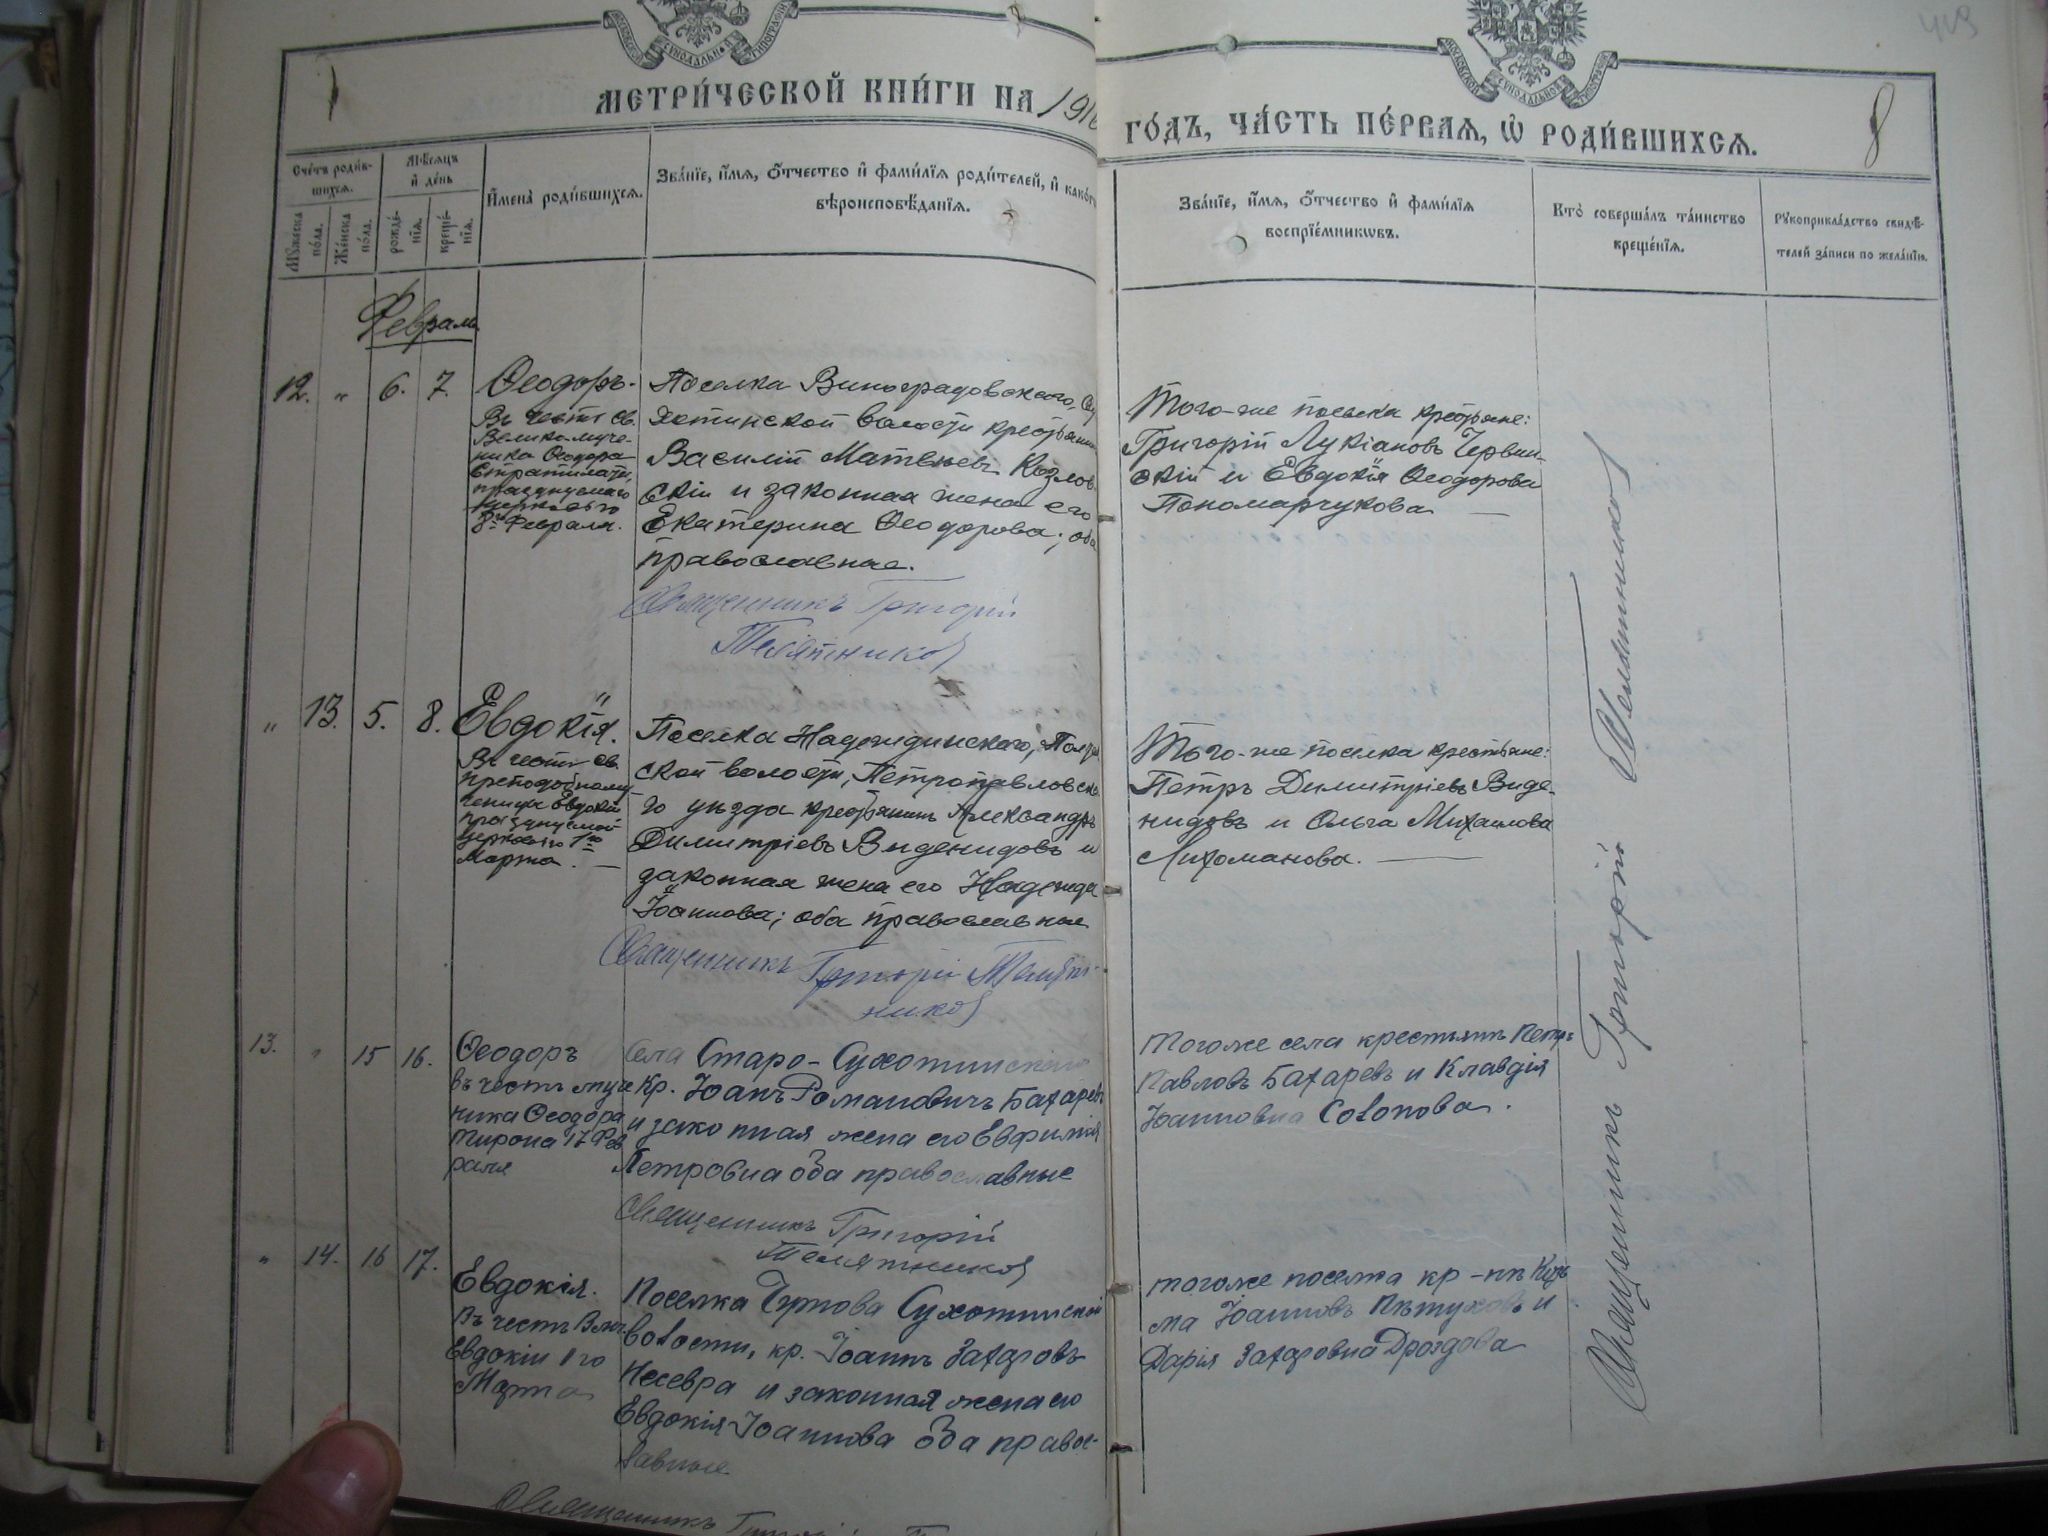 МЕТРИ́ЧЕСКОЙ КНИ́ГИ НА 191
ГО́ДЪ, ЧА́СТЬ ПЕ́РВАЯ, Ѡ҆ РОДИ́ВШИХСЯ.
8
419
Сче́тъ роди́в-
шихся.
Мѣ́сяцъ
и҆ де́нь
Му́жеска
по́ла.
Же́нска
по́ла.
рожде́-
нїя.
креще́-
нїя.
И҆мена̀ роди́вшихся.
Зва́нїе, и҆́мя, ѻ҆́тчество и҆ фами́лїя роди́телей, и҆ како́гѡ
вѣроисповѣ́данїя.
Зва́нїе, и҆́мя, ѻ҆́тчество и҆ фами́лїя
воспрїе́мникѡвъ.
Кто̀ соверша́лъ та́инство
креще́нїя.
Рукоприкла́дство свидѣ́-
телей за́писи по жела́нїю.
Февраль
12. " 6. 7. Ѳеодоръ.
Въ честь св.
Велико-муче-
ника Ѳеодора
Стратилата,
празднуемаго
церковью
8го Февраля.
Поселка Виноградовскаго, Су
хотинской волости крестьянинъ
Василій Матвѣевъ Козлов-
скій и законная жена его
Екатерина Ѳеодорова; оба
православные.
Священникъ Григорій
Телятниковъ
Того-же поселка крестьяне:
Григорій Лукіановъ Червин-
скій и Евдокія Ѳеодорова
Пономарчукова
" 13. 5. 8. Евдокія.
Въ честь св.
преподобному-
ченицы Евдокіи
празднуемой
церковью 1го
Марта.
Поселка Надеждинскаго,
ской волости, Петропавловска-
го уѣзда крестьянинъ Александръ
Димитріевъ Виденидовъ и
законная жена его Надежда
Іоаннова; оба православные
Священникъ Григорій Телят-
никовъ
Того-же поселка крестьяне:
Петръ Димитріевъ Виде-
нидовъ и Ольга Михаилова
Лихоманова.
13. " 15 16. Ѳеодоръ
въ честь муче
ника Ѳеодора
Тирона 17 Фев
раля
села Старо-Сухотинскаго
Кр. Іоанъ Романовичъ Бахаревъ
и законная жена его Евфимія
Петровна оба православные
Священникъ Григорій
Телятниковъ
Тогоже села крестьянъ Петръ
Павловъ Бахаревъ и Клавдія
Іоанновна Солонова.
" 14. 16 17. Евдокія.
Въ честь
Евдокіи 1го
Марта
Поселка Сухотинской
волости, кр. Іоаннъ Захаровъ
и законная жена его
Евдокія Іоаннова оба правос-
лавные
Священникъ
тогоже поселка кр-нъ Кузь
ма Іоанновъ Пѣтуховъ и
Дарія Захаровна Дроздова
Священникъ Григорій Телятниковъ